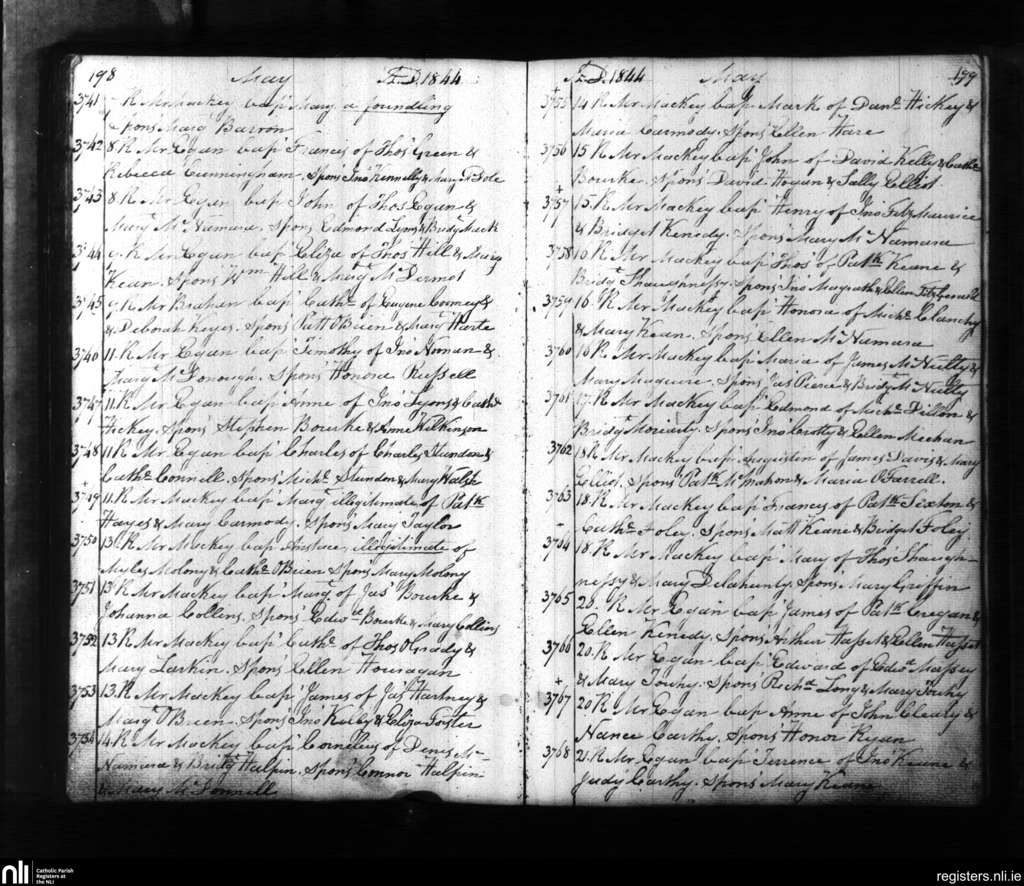 198 May A.D. 1844
3741 R Mr Mackey bap' Mary a foundling
Spons Marg' Barron
3742 8 R Mr Egan bap' Frances of Thos Green &
Rebecca Cunningham. Spons Jno Kennelly & Mary
3743 8 R Mr Egan bap' John of Thos Egan &
Marg' McNamara. Spons Edmond Lyons & Bridg' Mack
3744 R Mr Egan bap' Eliza of Thos Hill & Mary
Kean. Spons Wm Hill & Marg' McDermot
3745 9 R Mr Brahan bap' Cathe of Eugene Toomey &
& Deborah Keyes. Spons Patt O'Brien & Marg' Harte
3746 11 R Mr Egan bap' Timothy of Jno Noonan &
Marg' McDonough. Spons Honora Russell
3747 11 R Mr Egan bap' Anne of Jno Lyons & Cathe
Hickey. Spons Stephen Bourke & Anne Wilkinson
3748 11 R Mr Egan bap' Charles of Charles Stundon &
Cathe Connell. Spons Michl Stundon & Mary Walsh
3749 11 R Mr Mackey bap' Marg' illegitimate of Patk
Hayes & Mary Carmody. Spons Mary Taylor
3750 13 R Mr Mackey bap' Anstace, illegitimate of
Myles Molony & Cathe O'Brien Spons Mary Molony
3751 13 R Mr Mackey bap' Marg' of Jas Bourke &
Johanna Collins. Spons Edwd Bourke & Mary Collins
3752 13 R Mr Mackey bap' Cathe of Thos O'Grady &
Mary Larkin. Spons Ellen Houragan
3753 13. R Mr Mackey bap' James of Jas Hartney &
Marg' O'Brien. Spons Jno Kirby & Eliza Foister
3754 14 R Mr Mackey bap' Cornelius of Denis Mc
Namara & Bridg' Halpin. Spons Connor Halpin
& Mary McDonnell
A.D. 1844 May 199
3755 14 R Mr Mackey bap' Mark of Danl Hickey &
Maria Carmody. Spons Ellen Hare
3756 15 R Mr Mackey bap' John of David Kelly & Cathe
Bourke. Spons David Hogan & Sally Elliot
3757 15 R Mr Mackey bap' Henry of Jno FitzMaurice
& Bridget Kenedy. Spons Mary McNamara
3758 16 R Mr Mackey bap' Thos of Patk Keane &
Bridg' Shaughnessy. Spons Jno Magrath & Ellen Fitzgerald
3759 16 R Mr Mackey bap' Honora of Michl Clanchy
& Mary Kean. Spons Ellen McNamara
3760 16 R Mr Mackey bap' Maria of James McNulty &
Mary Maguire. Spons Jas Pierce & Bridg' McNulty
3761 17 R Mr Mackey bap' Edmond of Michl Dillon &
Bridg' Moriarty. Spons Jno Crotty & Ellen Meehan
3762 18 R Mr Mackey bap' Augustin of James Davis & Mary
Elliot. Spons Patk McMahon & Maria O'Farrell.
3763 18 R Mr Mackey bap' Frances of Patk Sexton &
Cathe Foley. Spons Matt Keane & Bridget Foley
3764 18 R Mr Mackey bap' Mary of Thos Shaugh-
nessy & Mary Delahunty. Spons Mary Griffin
3765 20. R Mr Egan bap' James of Patk Cregan &
Ellen Kenedy. Spons Arthur Hasset & Ellen Hasset
3766 20. R Mr Egan bap' Edward of Edwd Massey
& Mary Touhy. Spons Richd Long & Mary Touhy
3767 20 R Mr Egan bap' Anne of John Cleary &
Nance Carthy. Spons Honor Ryan
3768 21 R Mr Egan bap' Terrence of Jno Keane &
Judy Carthy. Spons Mary Keane
nli Catholic Parish
Registers at
the NLI
registers.nli.ie